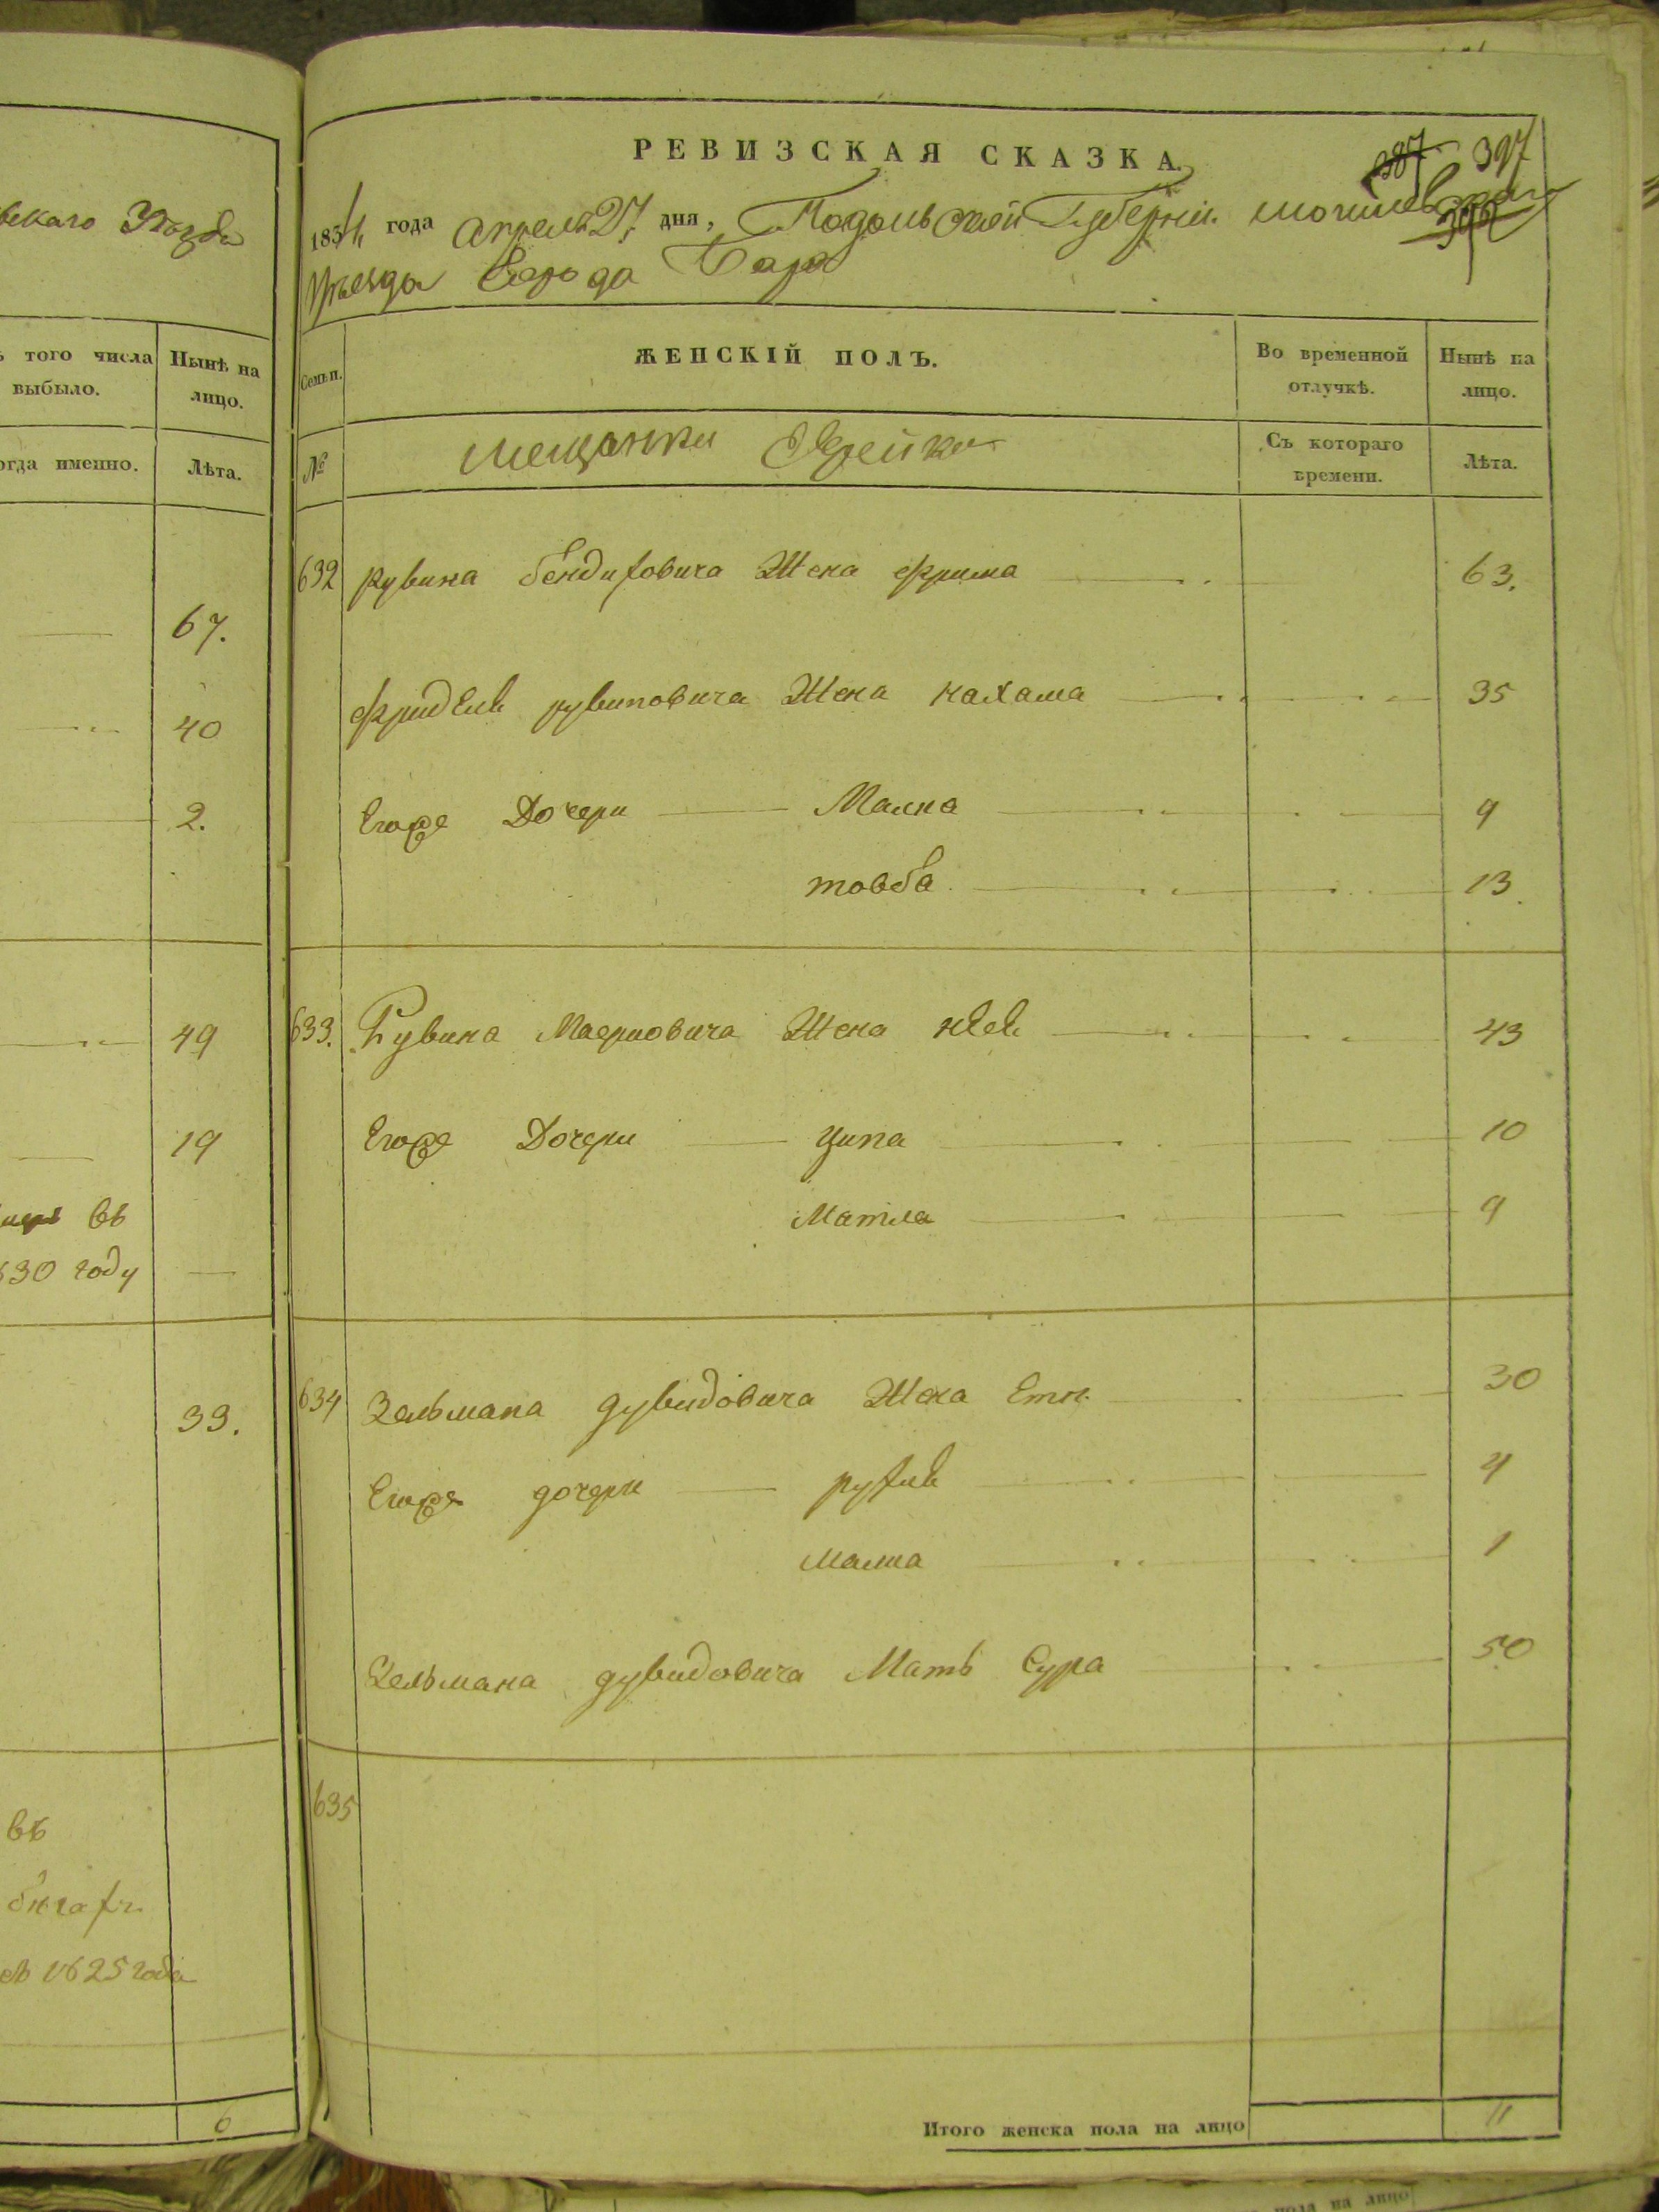 скаго Уѣзда
того числа
выбыло.
Нынѣ на
лицо.
огда именно.
Лѣта.
67.
40
2.
49
19
въ
30 году
39.
въ
1825 года
6
РЕВИЗСКАЯ СКАЗКА.
387 397
1834 года апреля 27 дня, Подольской Губерніи могилевскаго
396
уѣзда Города Бара
Семьи.
ЖЕНСКІЙ ПОЛЪ.
Во временной
отлучкѣ.
Нынѣ на
лицо.
№
мещанки Еврейки
Съ котораго
времени.
Лѣта.
632 рувина бендитовича Жена фрима 63.
фридель рувиновича Жена нахама 35
Егоже Дочери Малка 9
товба 13.
633. Рувина Маерковича Жена 43
Егоже Дочери ципа 10
Матля 9
634 Зельмана дувидовича Жена Етя 30
Егоже дочери рухля 4
малка 1
Зельмана дувидовича Мать Сура 50
635
Итого женска пола на лицо 11
пола на лицо